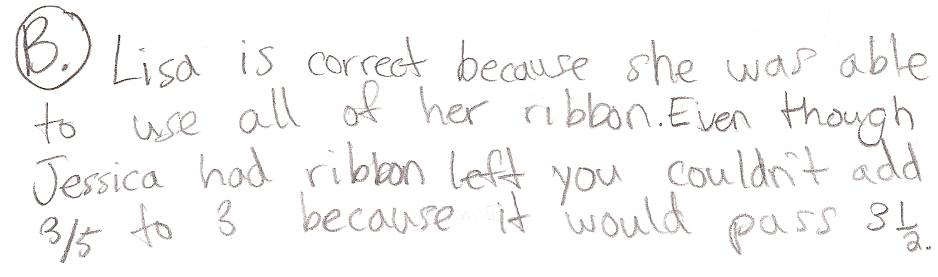 B. Lisa is correct because she was able
to use all of her ribbon. Even though
Jessica had ribbon left you couldn't add
3/5 to 3 because it would pass 3 1/2.